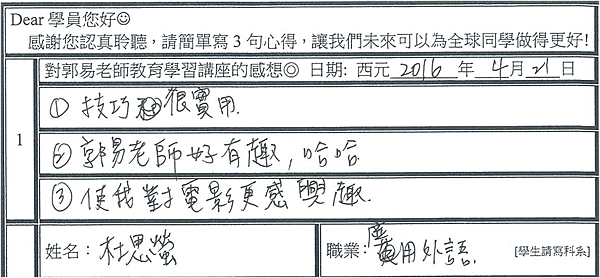 Dear 學員您好☺
感謝您認真聆聽，請簡單寫 3 句心得，讓我們未來可以為全球同學做得更好!
對郭易老師教育學習講座的感想◎ 日期: 西元 2016 年 4月 21 日
1
① 技巧很實用.
② 郭易老師好有趣，哈哈
③ 使我對電影更感興趣.
姓名: 杜思螢 職業: 應用外語 [學生請寫科系]